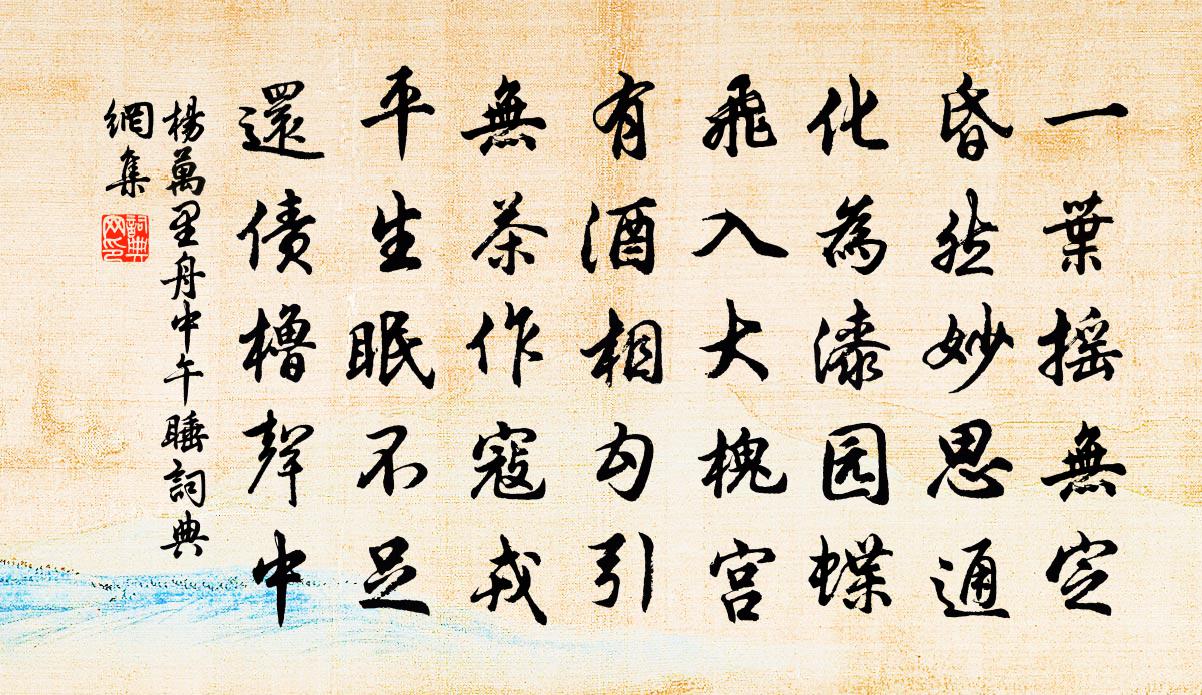 一葉摇無定
昏然妙思通
化為漆园蝶
飛入大槐宫
有酒相勾引
無茶作寇戎
平生眠不足
還债櫓聲中
楊萬里舟中午睡詞典
網集
詞典
网印